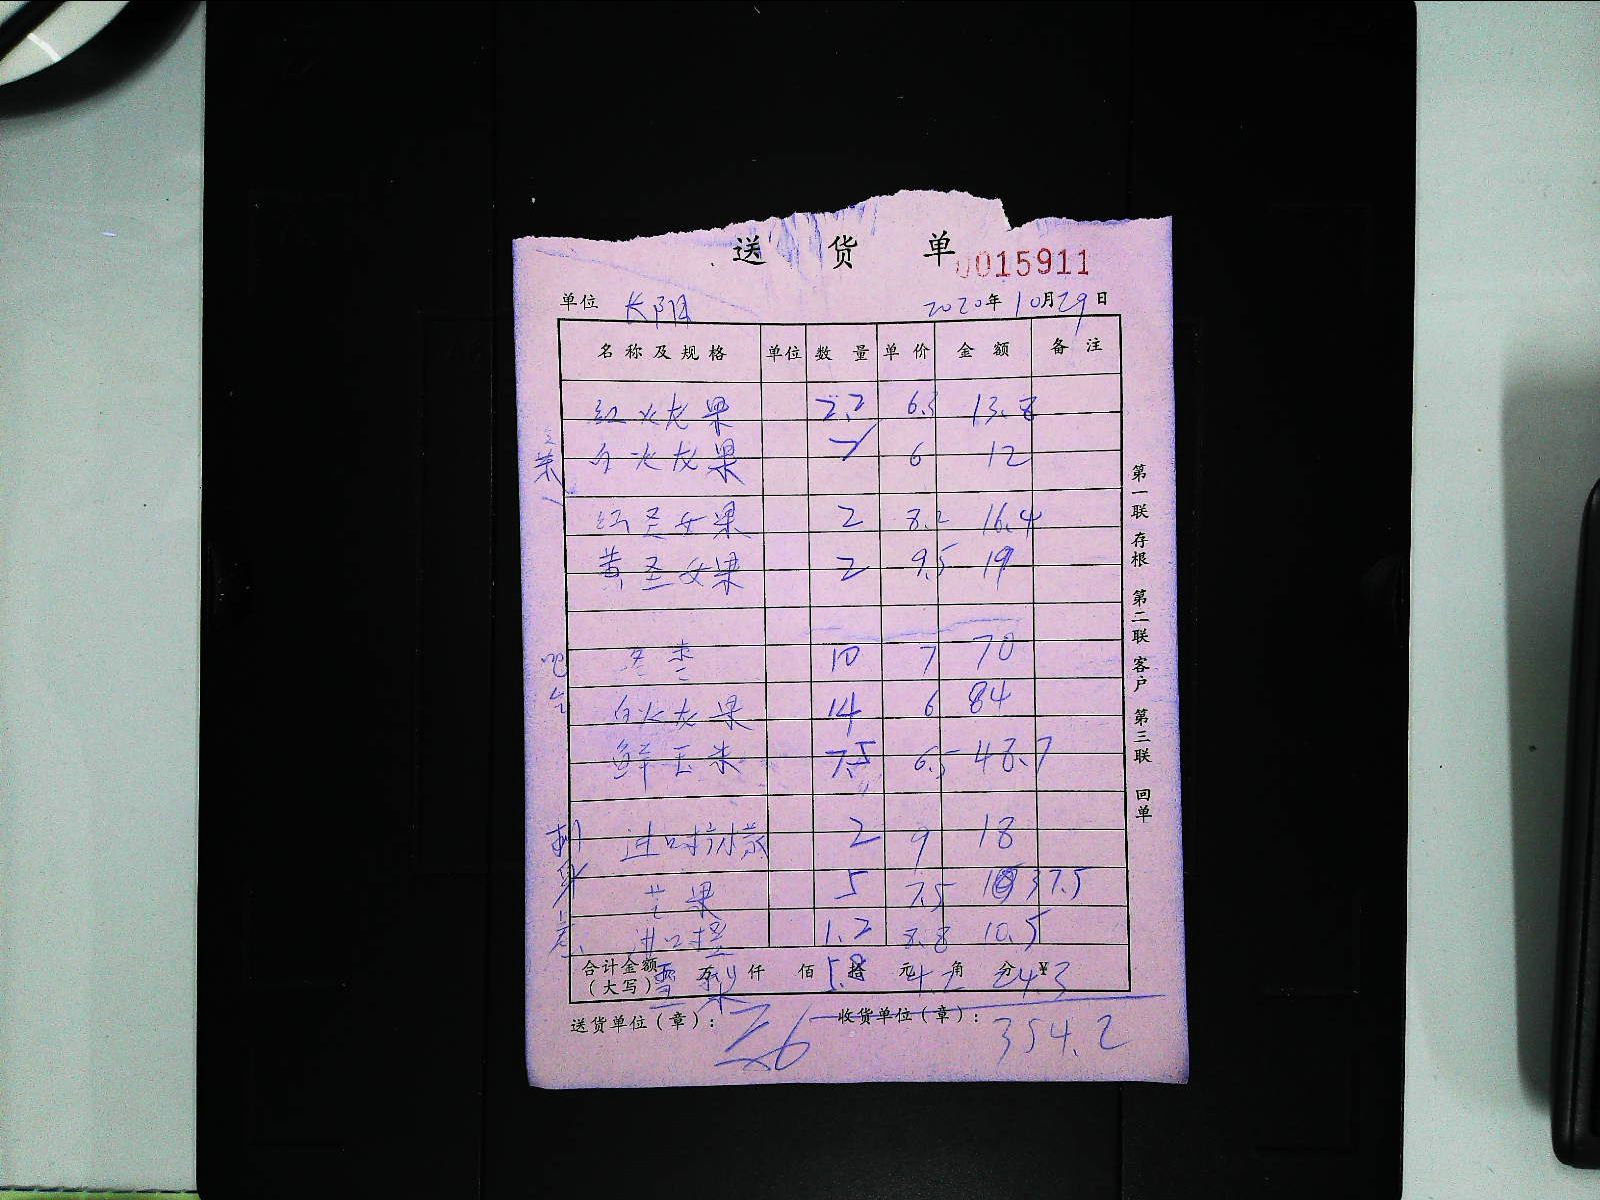 送 货 单
0015911
单位 长阳 2020年10月29日
名称及规格 单位 数量 单价 金额 备注
红火龙果 2.2 6.3 13.8
白火龙果 2 6 12
红圣女果 2 8.2 16.4
黄圣女果 2 9.5 19
冬枣 10 7 70
吧台
白火龙果 14 6 84
鲜玉米 7.5 6.5 48.7
进口柠檬 2 9 18
刺身
芒果 5 7.5 37.5
进口橙 1.2 8.8 10.5
合计金额(大写) 万 仟 佰 拾 元 角 分 ¥
雪梨 5.8 4.2 24.3
送货单位(章): 收货单位(章):
354.2
第一联 存根 第二联 客户 第三联 回单